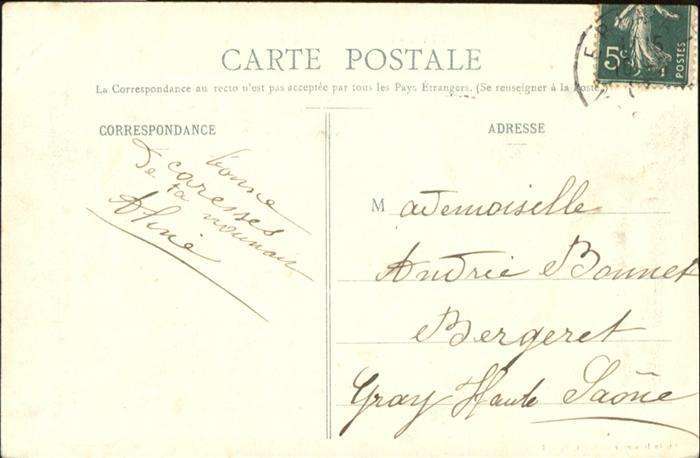 CARTE POSTALE
La Correspondance au recto n'est pas acceptée par tous les Pays Étrangers. (Se renseigner à la Poste
CORRESPONDANCE
bonne
caresses
De ta nounou
Aline
ADRESSE
Mademoiselle
Andrée Bonnet
Bergeret
Gray Haute Saône
5c
POSTES